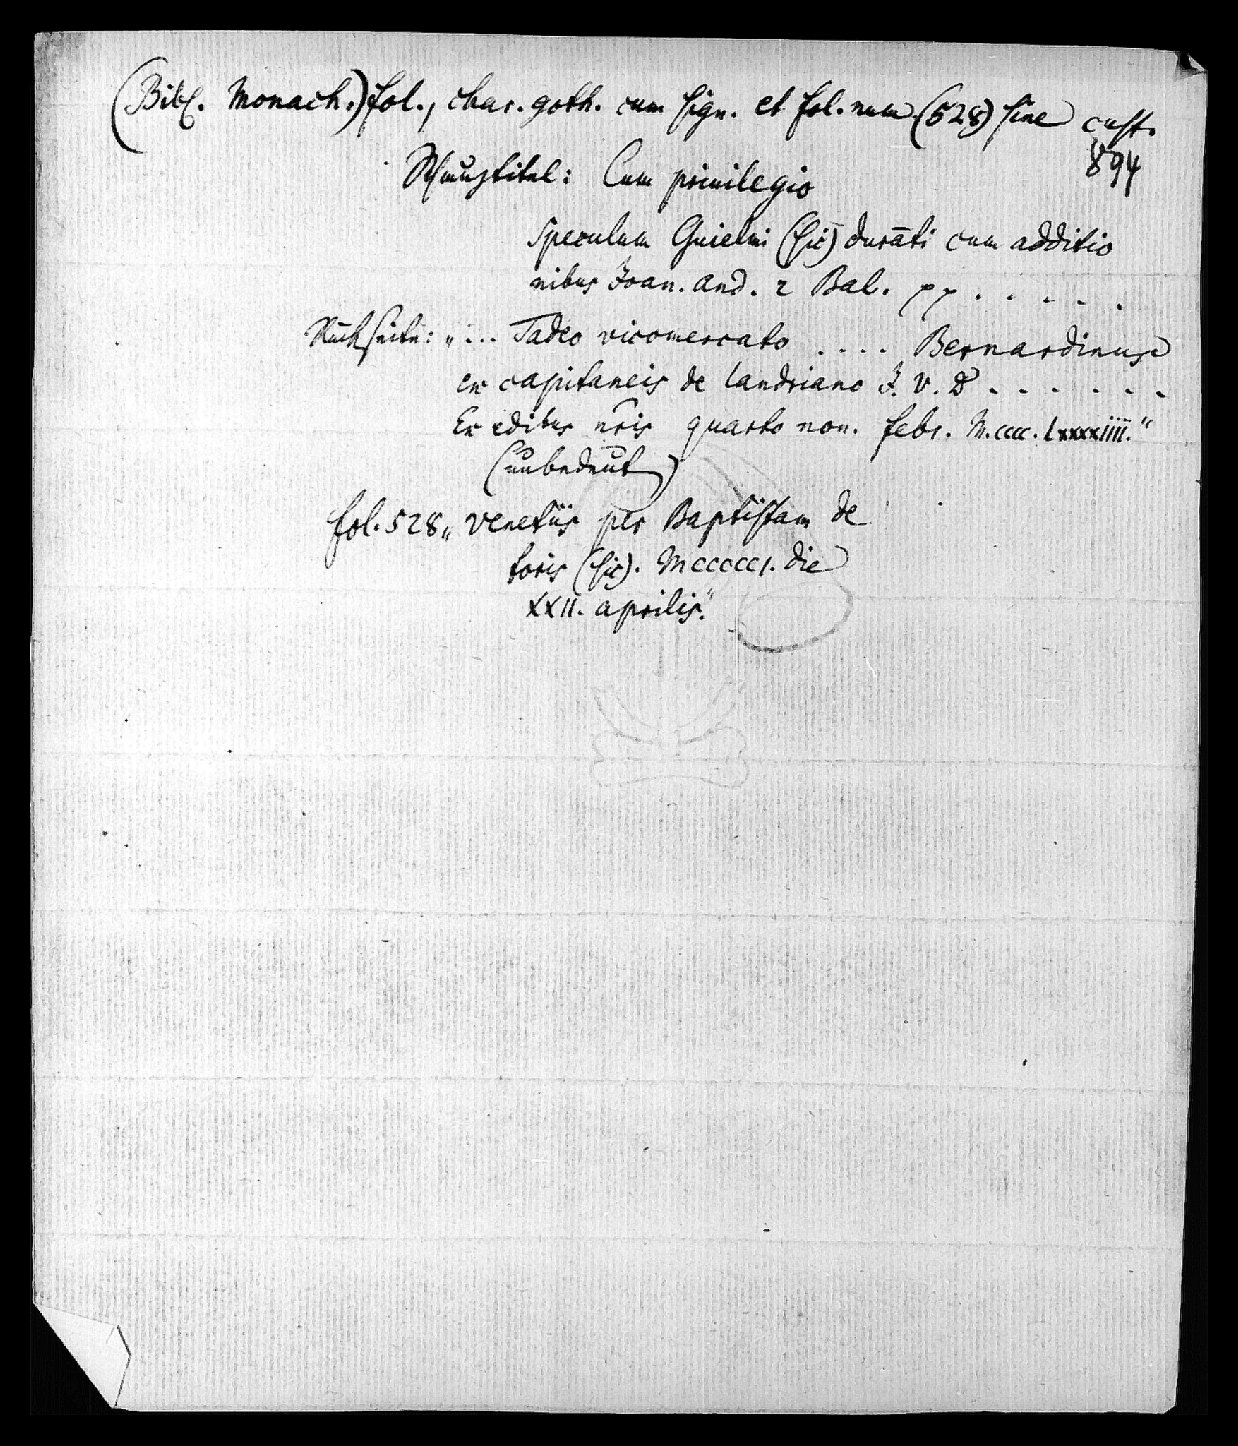 (Bibl. Monach.) fol., char. goth. cum sign. et fol. num (528) sine cust.
894
Schmuztitel: Cum privilegio
Speculum Guielmi (sic) durāti cum additio
nibus Joan. and. 2 Bal. pp. . . . . .
Rückseite: „... Tadeo vicomercato .... Bernardinus
ex capitaneis de Landriano J. V. D . . . . . .
Ex edibus nr̄is quarto non. febr. M.cccc.Lxxxxiiii."
(unbedeut)
fol. 528 „ venetiis per Baptistam de
toris (sic). Mcccccci. die
XXII. aprilis."